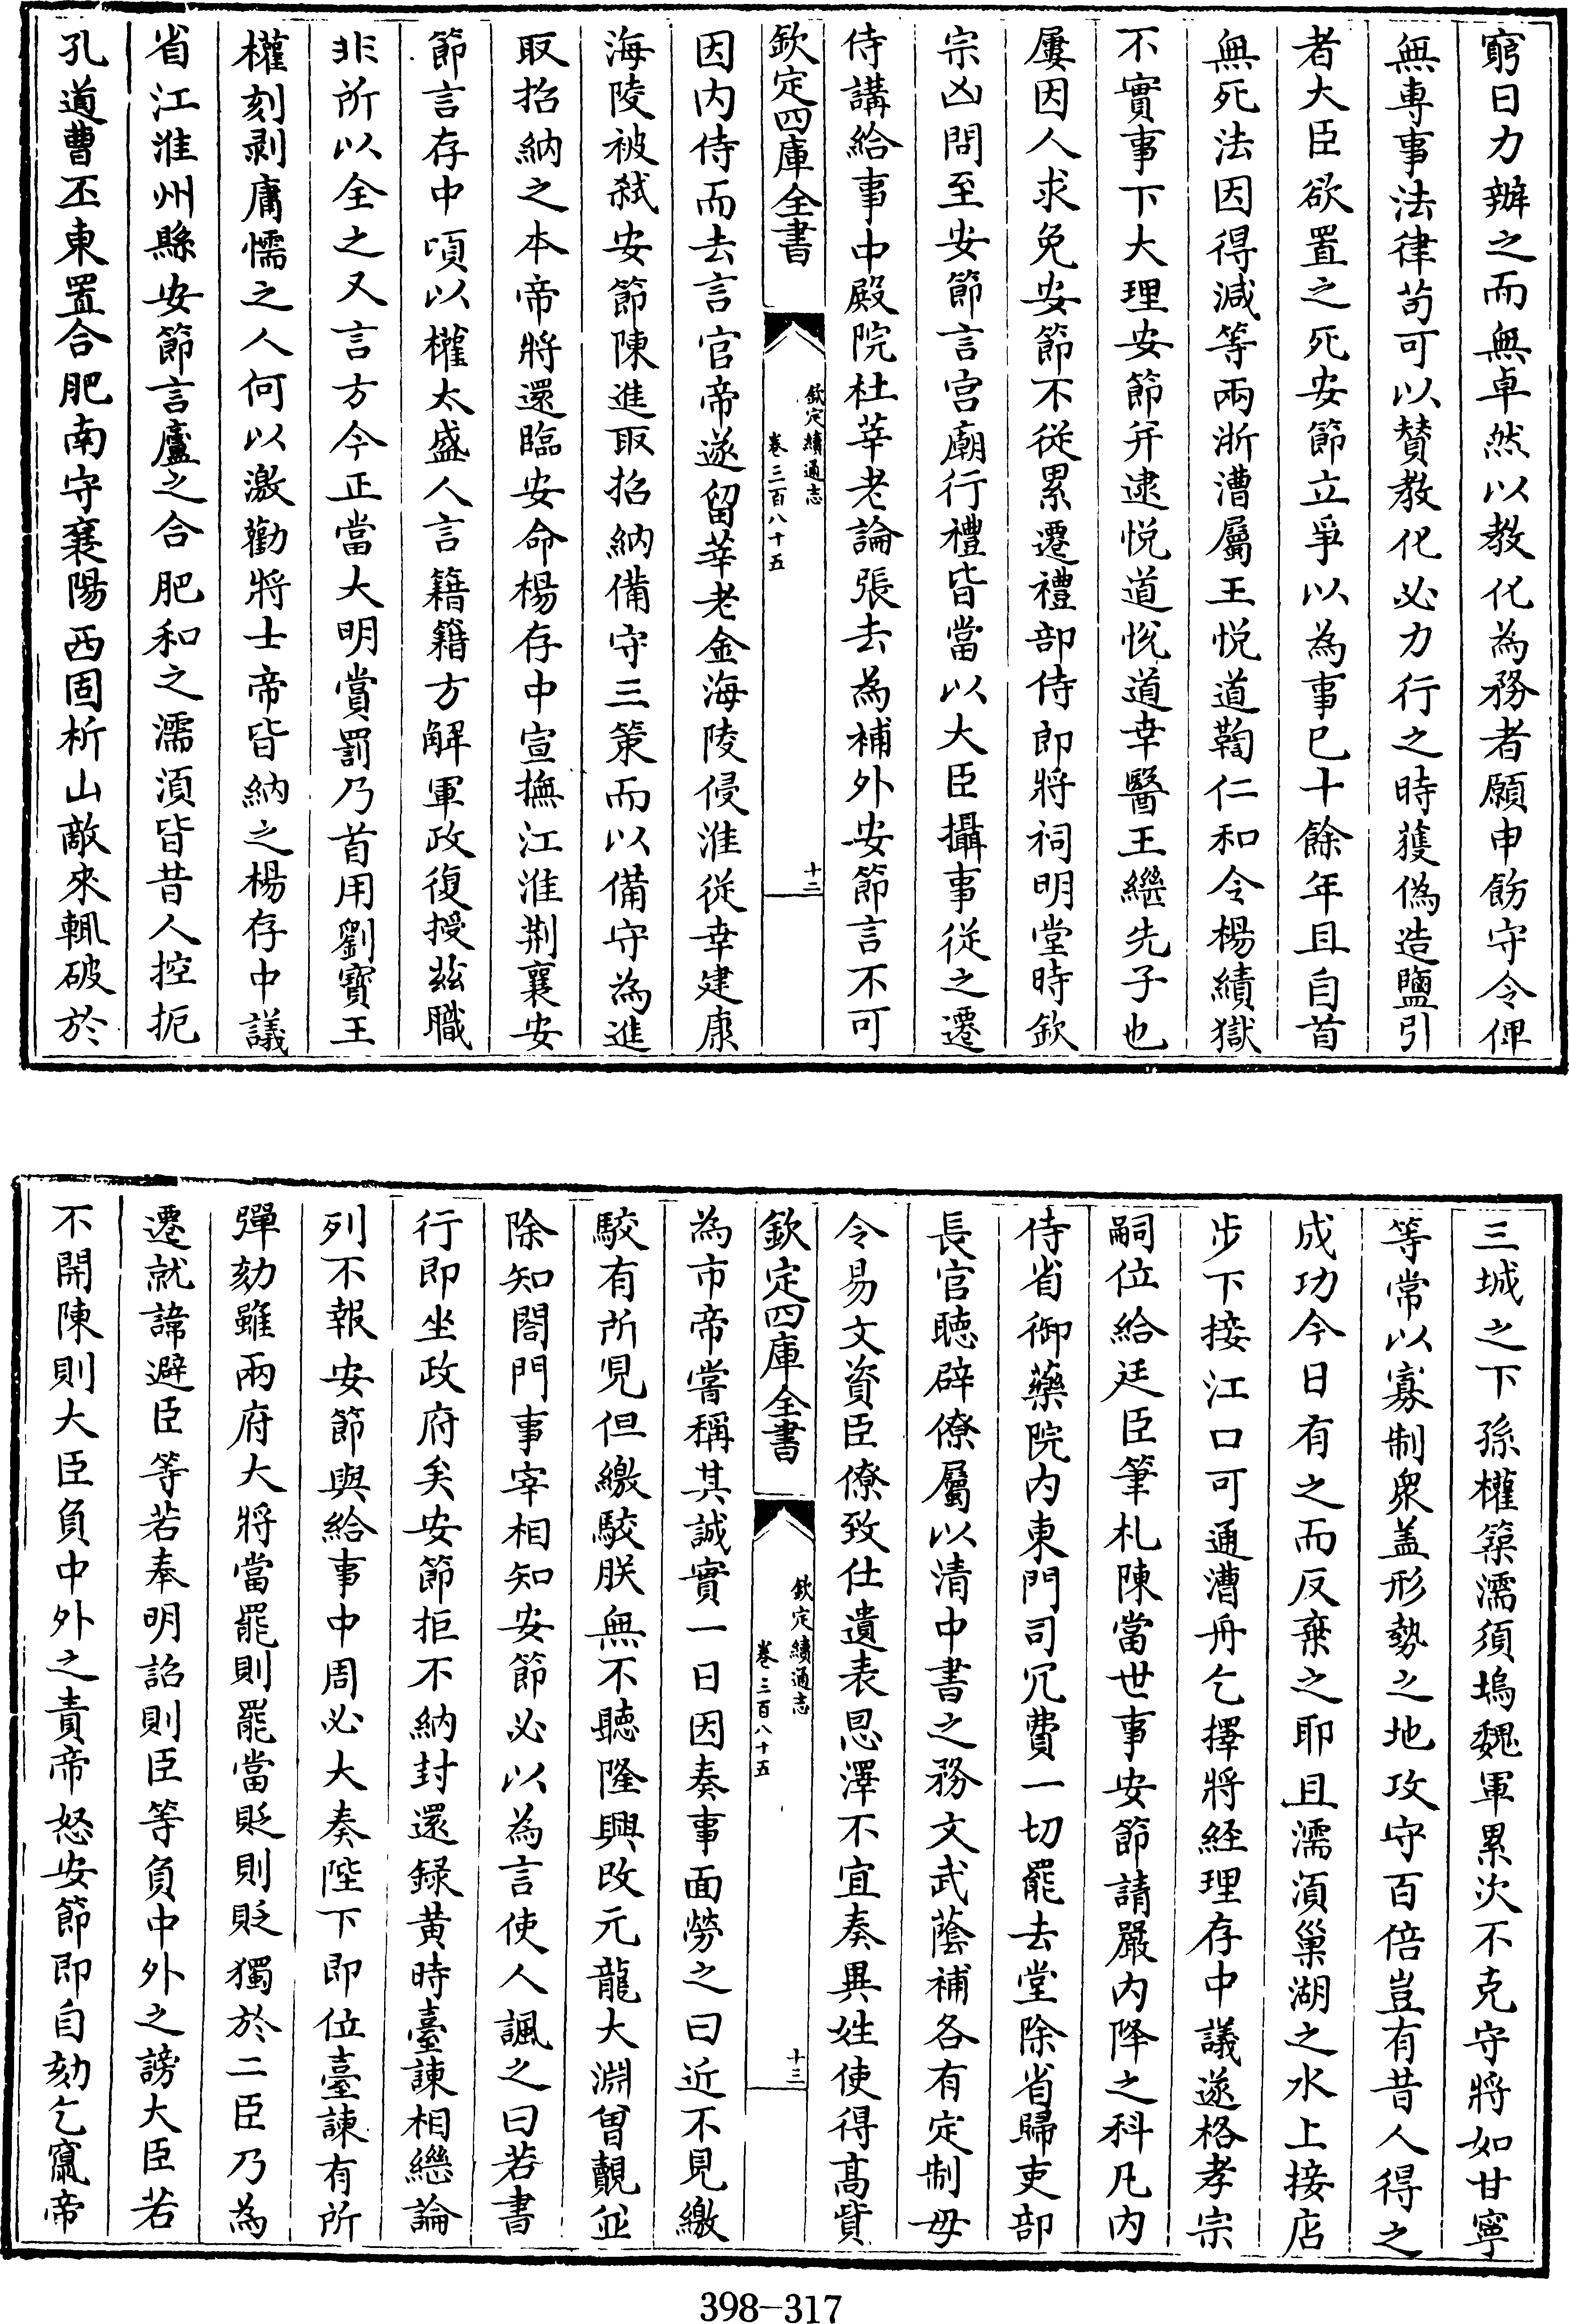 窮日力辦之而無卓然以教化為務者願申飭守令俾
無専事法律苟可以贊教化必力行之時獲偽造鹽引
者大臣欲置之死安節立爭以為事已十餘年且自首
無死法因得減等兩浙漕屬王悦道鞫仁和令楊績獄
不實事下大理安節并逮悦道悦道幸醫王繼先子也
屢因人求免安節不從累遷禮部侍郎將祠明堂時欽
宗凶問至安節言宫廟行禮皆當以大臣攝事從之遷
侍講給事中殿院杜莘老論張去為補外安節言不可
欽定四庫全書
欽定續通志
卷三百八十五
十二
因内侍而去言官帝遂留莘老金海陵侵淮從幸建康
海陵被弑安節陳進取招納備守三策而以備守為進
取招納之本帝將還臨安命楊存中宣撫江淮荆襄安
節言存中頃以權太盛人言籍籍方解軍政復授兹職
非所以全之又言方今正當大明賞罰乃首用劉寶王
權刻剥庸懦之人何以激勸將士帝皆納之楊存中議
省江淮州縣安節言廬之合肥和之濡湏皆昔人控扼
孔道曹丕東置合肥南守襄陽西固析山敵來輙破於
三城之下孫權築濡須塢魏軍累次不克守將如甘寧
等常以寡制衆盖形勢之地攻守百倍豈有昔人得之
成功今日有之而反棄之耶且濡湏巢湖之水上接店
步下接江口可通漕舟乞擇將經理存中議遂格孝宗
嗣位給廷臣筆札陳當世事安節請嚴内降之科凡内
侍省御藥院内東門司冗費一切罷去堂除省歸吏部
長官聽辟僚屬以清中書之務文武蔭補各有定制毋
令易文資臣僚致仕遺表恩澤不宜奏異姓使得髙貲
欽定四庫全書
欽定續通志
卷三百八十五
十三
為市帝嘗稱其誠實一日因奏事面勞之曰近不見繳
駮有所見但繳駮朕無不聽隆興改元龍大淵曾覿並
除知閤門事宰相知安節必以為言使人諷之曰若書
行即坐政府矣安節拒不納封還録黄時臺諫相繼論
列不報安節與給事中周必大奏陛下即位臺諫有所
彈劾雖兩府大將當罷則罷當貶則貶獨於二臣乃為
遷就諱避臣等若奉明詔則臣等負中外之謗大臣若
不開陳則大臣負中外之責帝怒安節即自劾乞竄帝
398-317